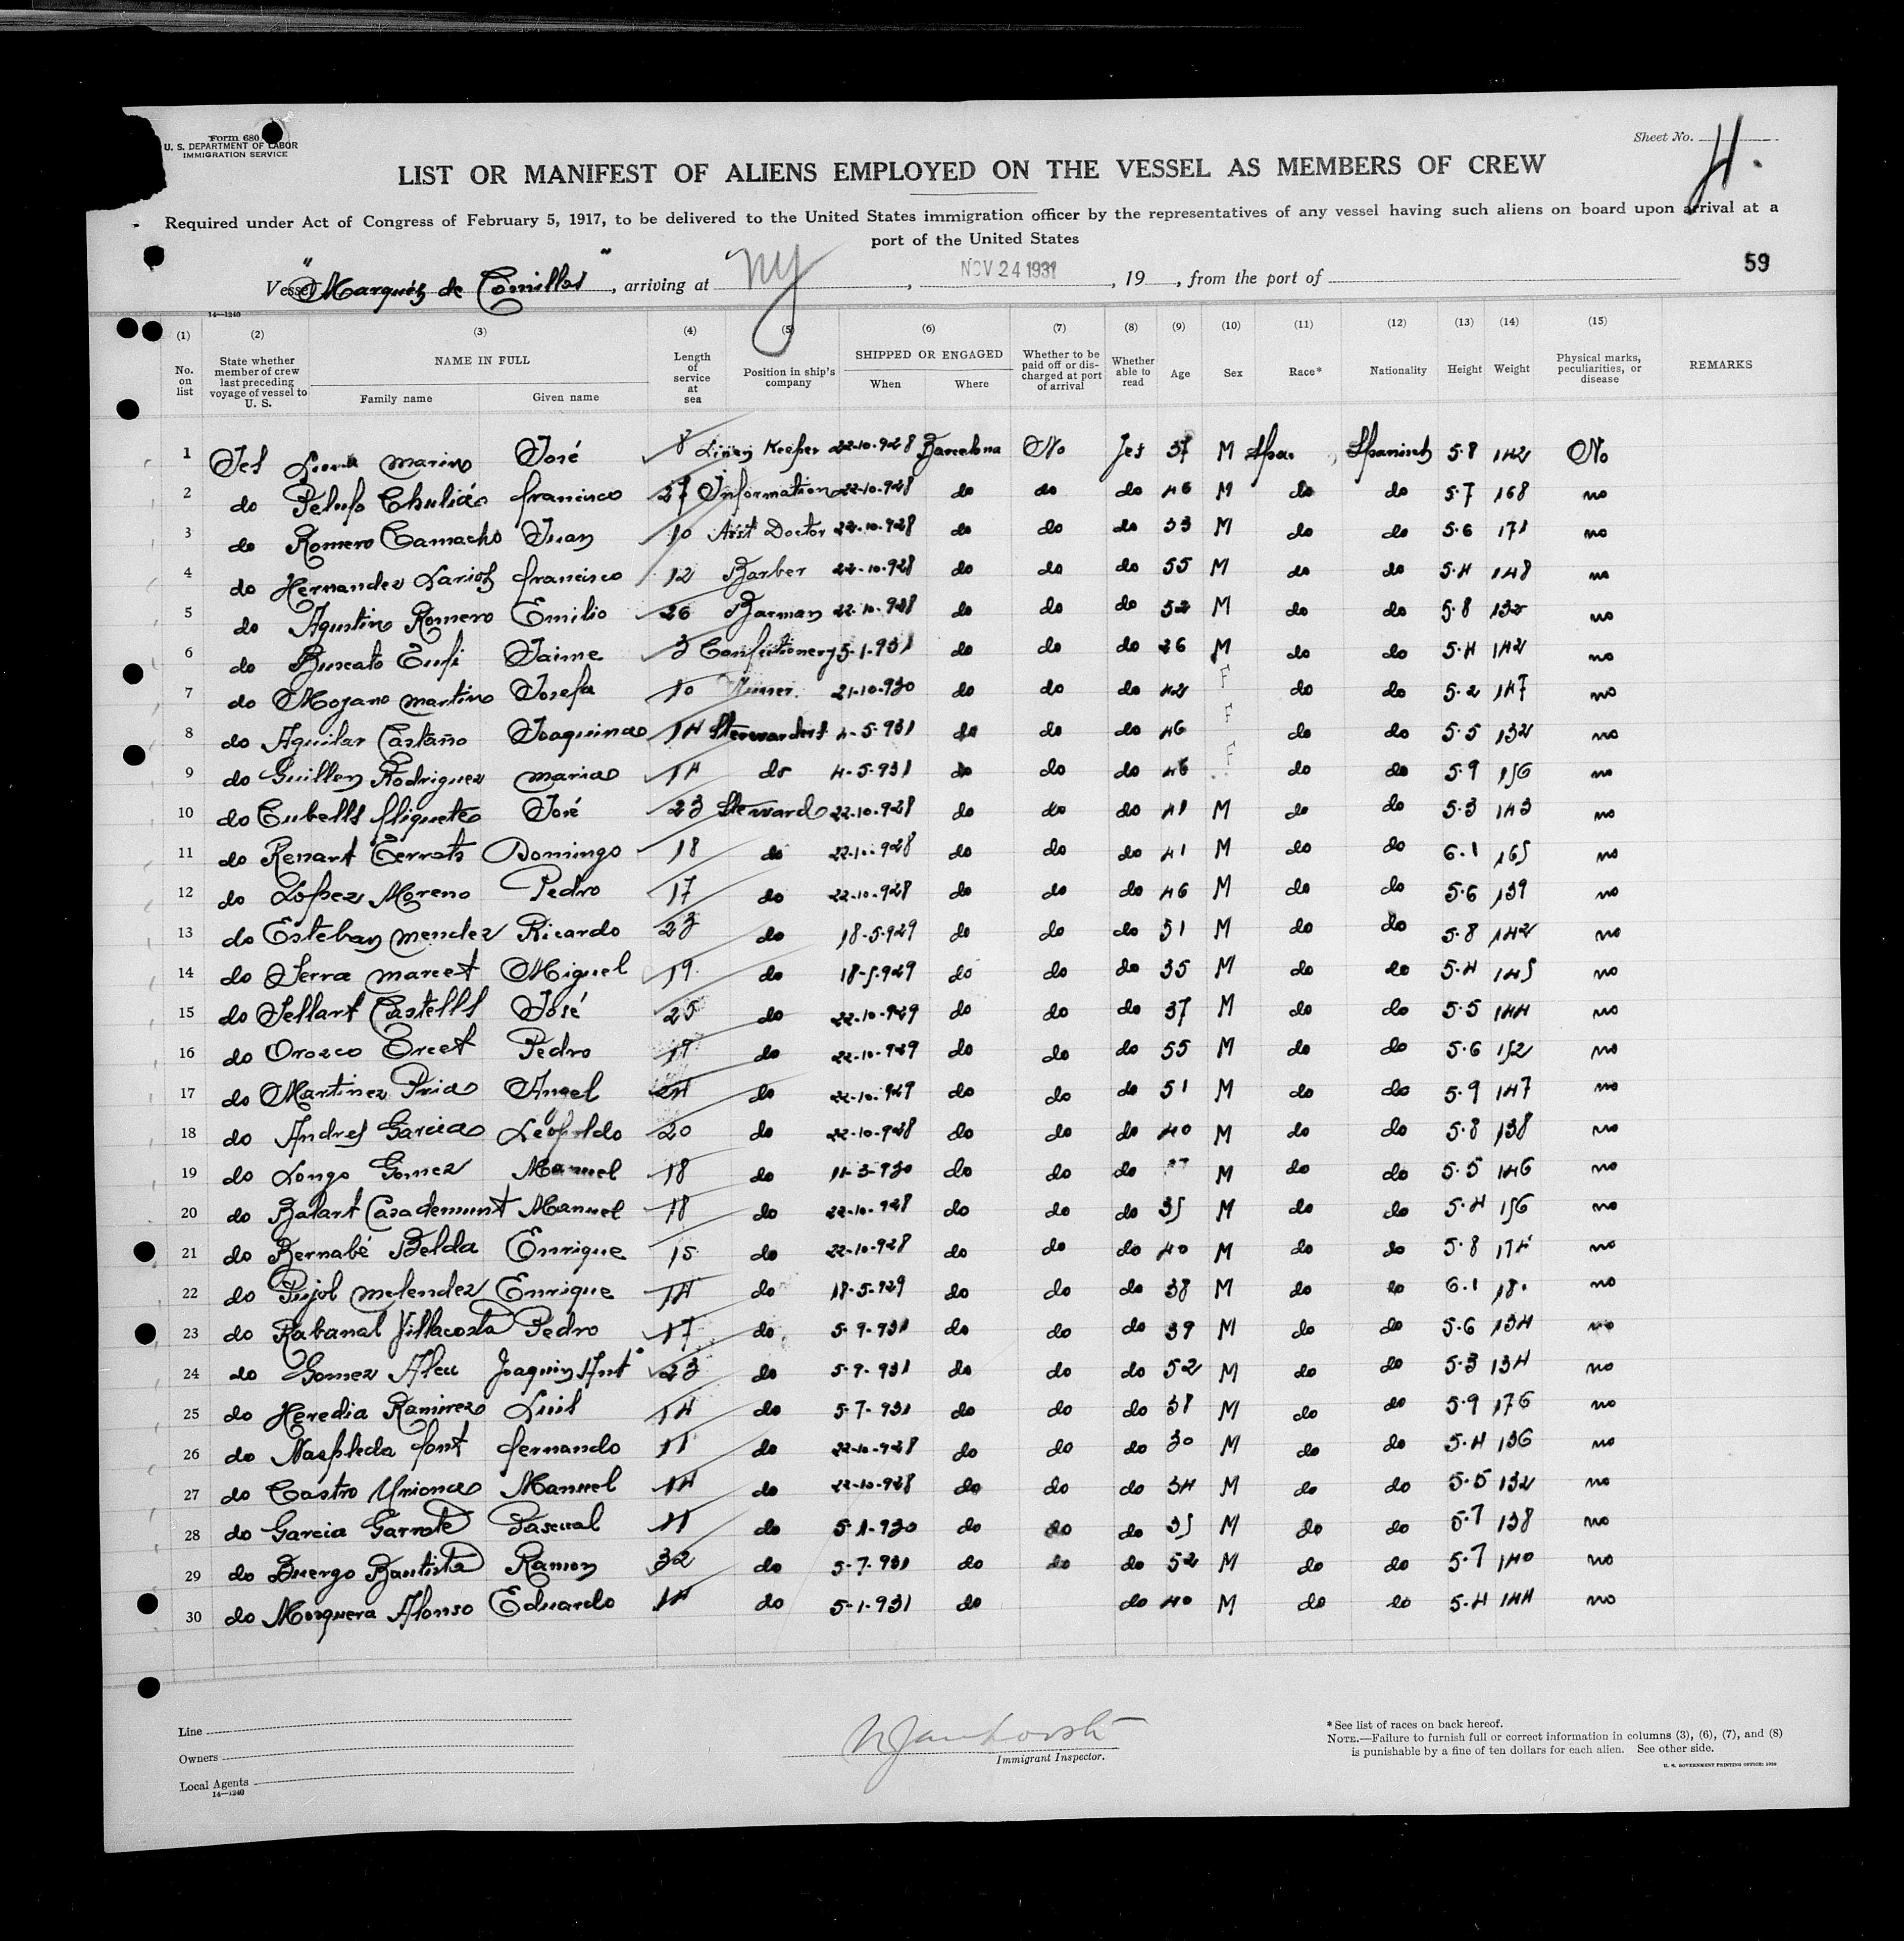 Form 680
U. S. DEPARTMENT OF LABOR
IMMIGRATION SERVICE
Sheet No. 4.
LIST OR MANIFEST OF ALIENS EMPLOYED ON THE VESSEL AS MEMBERS OF CREW
Required under Act of Congress of February 5, 1917, to be delivered to the United States immigration officer by the representatives of any vessel having such aliens on board upon arrival at a
port of the United States
59
Vessel "Marqués de Comillas", arriving at NY, NOV 24 1931, 19, from the port of
14—1240
(1) (2) (3) (4) (5) (6) (7) (8) (9) (10) (11) (12) (13) (14) (15)
No. on list State whether member of crew last preceding voyage of vessel to U. S. NAME IN FULL Family name Given name Length of service at sea Position in ship's company SHIPPED OR ENGAGED When Where Whether to be paid off or discharged at port of arrival Whether able to read Age Sex Race* Nationality Height Weight Physical marks, peculiarities, or disease REMARKS
1 Yes Marino José 8 Linen Keeper 22-10-928 Barcelona No Yes 37 M Spa. Spanish 5.8 142 No
2 do Pelufo Chuliá francisco 27 Information 22-10-928 do do do 46 M do do 5.7 168 no
3 do Romero Camacho Juan 10 Asst Doctor 22-10-928 do do do 33 M do do 5.6 171 no
4 do Hernandez Larios francisco 12 Barber 22-10-928 do do do 55 M do do 5.4 148 no
5 do Agustin Romero Emilio 26 Barman 22-10-928 do do do 52 M do do 5.8 132 no
6 do Buscato Jaime 3 Confectionery 5-1-931 do do do 36 M do do 5.4 142 no
7 do Moyano martino Josefa 10 21-10-930 do do do 42 F do do 5.2 147 no
8 do Aguilar Castaño Joaquina 14 Sterwardest 4-5-931 do do do 46 F do do 5.5 132 no
9 do Guillen Rodriguez maria 14 do 4-5-931 do do do 46 F do do 5.9 156 no
10 do Cubells fliquete José 23 Sterward 22-10-928 do do do 41 M do do 5.3 143 no
11 do Renart Cerrats Domingo 18 do 22-10-928 do do do 41 M do do 6.1 165 no
12 do López Moreno Pedro 17 do 22-10-928 do do do 46 M do do 5.6 139 no
13 do Esteban mendez Ricardo 23 do 18-5-929 do do do 51 M do do 5.8 142 no
14 do Serra marcet Miguel 19 do 18-5-929 do do do 35 M do do 5.4 145 no
15 do Sellart Castells José 25 do 22-10-929 do do do 37 M do do 5.5 144 no
16 do Orozco Orcet Pedro 19 do 22-10-929 do do do 55 M do do 5.6 152 no
17 do Martinez Pria Angel 24 do 22-10-929 do do do 51 M do do 5.9 147 no
18 do Andres Garcia Leopoldo 20 do 22-10-928 do do do 40 M do do 5.8 138 no
19 do Longo Gomez Manuel 18 do 11-3-930 do do do M do do 5.5 146 no
20 do Batart Casademunt Manuel 18 do 22-10-928 do do do 35 M do do 5.4 156 no
21 do Bernabé Belda Enrique 15 do 22-10-928 do do do 40 M do do 5.8 174 no
22 do Pujol melendez Enrique 14 do 18-5-929 do do do 38 M do do 6.1 180 no
23 do Rabanal Villacosta Pedro 17 do 5-9-931 do do do 39 M do do 5.6 134 no
24 do Gomez Aleu Joaquin Antº 23 do 5-9-931 do do do 52 M do do 5.3 134 no
25 do Heredia Ramirez Luis 14 do 5-7-931 do do do 38 M do do 5.9 176 no
26 do Naspleda font fernando 11 do 22-10-928 do do do 30 M do do 5.4 136 no
27 do Castro Uniona Manuel 14 do 22-10-928 do do do 34 M do do 5.5 132 no
28 do Garcia Garrote Pascual 11 do 5-1-930 do do do 35 M do do 5.7 138 no
29 do Buergo Bautista Ramon 32 do 5-7-931 do do do 52 M do do 5.7 140 no
30 do Mosquera Alonso Eduardo 14 do 5-1-931 do do 40 M do do 5.4 144 no
Line
Owners
Local Agents
14—1240
Immigrant Inspector.
* See list of races on back hereof.
NOTE.—Failure to furnish full or correct information in columns (3), (6), (7), and (8)
is punishable by a fine of ten dollars for each alien. See other side.
U. S. GOVERNMENT PRINTING OFFICE: 1929